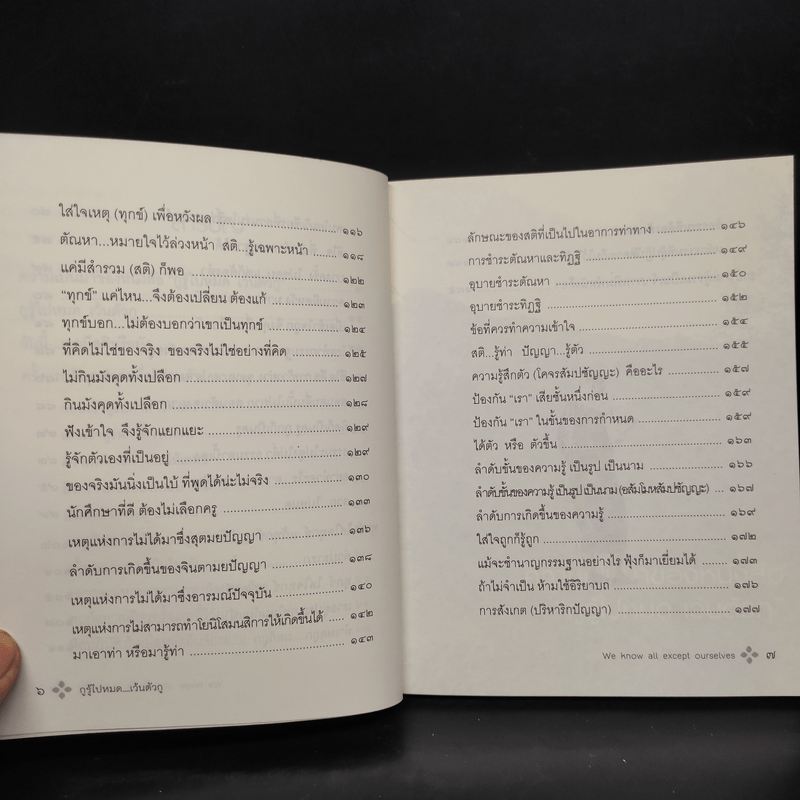 ใส่ใจเหตุ (ทุกข์) เพื่อหวังผล ........ ๑๑๖
ตัณหา...หมายใจไว้ล่วงหน้า สติ...รู้เฉพาะหน้า ........ ๑๑๘
แค่มีสำรวม (สติ) ก็พอ ........ ๑๒๒
"ทุกข์" แค่ไหน...จึงต้องเปลี่ยน ต้องแก้ ........ ๑๒๓
ทุกข์บอก...ไม่ต้องบอกว่าเขาเป็นทุกข์ ........ ๑๒๔
ที่คิดไม่ใช่ของจริง ของจริงไม่ใช่อย่างที่คิด ........ ๑๒๕
ไม่กินมังคุดทั้งเปลือก ........ ๑๒๗
กินมังคุดทั้งเปลือก ........ ๑๒๘
ฟังเข้าใจ จึงรู้จักแยกแยะ ........ ๑๒๙
รู้จักตัวเองที่เป็นอยู่ ........ ๑๒๙
ของจริงมันนิ่งเป็นใบ้ ที่พูดได้น่ะไม่จริง ........ ๑๓๐
นักศึกษาที่ดี ต้องไม่เลือกครู ........ ๑๓๓
เหตุแห่งการไม่ได้มาซึ่งสุตมยปัญญา ........ ๑๓๖
ลำดับการเกิดขึ้นของจินตามยปัญญา ........ ๑๓๘
เหตุแห่งการไม่ได้มาซึ่งอารมณ์ปัจจุบัน ........ ๑๔๐
เหตุแห่งการไม่สามารถทำโยนิโสมนสิการให้เกิดขึ้นได้ ..... ๑๔๒
มาเอาท่า หรือมารู้ท่า ........ ๑๔๓
๖ กูรู้ไปหมด...เว้นตัวกู
ลักษณะของสติที่เป็นไปในอาการท่าทาง ........ ๑๔๖
การชำระตัณหาและทิฏฐิ ........ ๑๔๙
อุบายชำระตัณหา ........ ๑๕๐
อุบายชำระทิฏฐิ ........ ๑๕๒
ข้อที่ควรทำความเข้าใจ ........ ๑๕๔
สติ...รู้ท่า ปัญญา...รู้ตัว ........ ๑๕๕
ความรู้สึกตัว (โคจรสัมปชัญญะ) คืออะไร ........ ๑๕๗
ป้องกัน "เรา" เสียชั้นหนึ่งก่อน ........ ๑๕๙
ป้องกัน "เรา" ในขั้นของการกำหนด ........ ๑๕๙
ได้ตัว หรือ ตัวขึ้น ........ ๑๖๓
ลำดับขั้นของความรู้ เป็นรูป เป็นนาม ........ ๑๖๖
ลำดับขั้นของความรู้ เป็นรูป เป็นนาม (อสัมโมหสัมปชัญญะ) ... ๑๖๗
ลำดับการเกิดขึ้นของความรู้ ........ ๑๖๙
ใส่ใจถูกก็รู้ถูก ........ ๑๗๒
แม้จะชำนาญกรรมฐานอย่างไร ฟุ้งก็มาเยี่ยมได้ ........ ๑๗๓
ถ้าไม่จำเป็น ห้ามใช้อิริยาบถ ........ ๑๗๖
การสังเกต (ปริหาริกปัญญา) ........ ๑๗๗
We know all except ourselves ๗